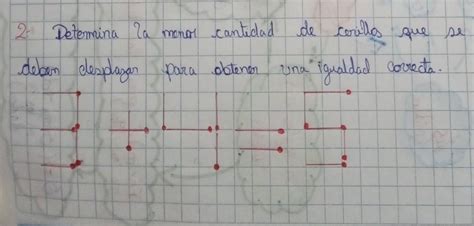 2. Determina la menor cantidad de cerillos que se
deban desplazar para obtener una igualdad correcta.
3+4=5